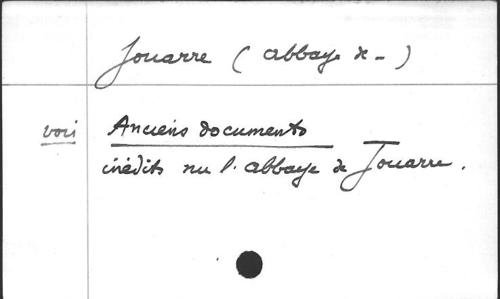 Jouarre (abbaye de -)
voir Anciens documents
inédits sur l'abbaye de Jouarre.